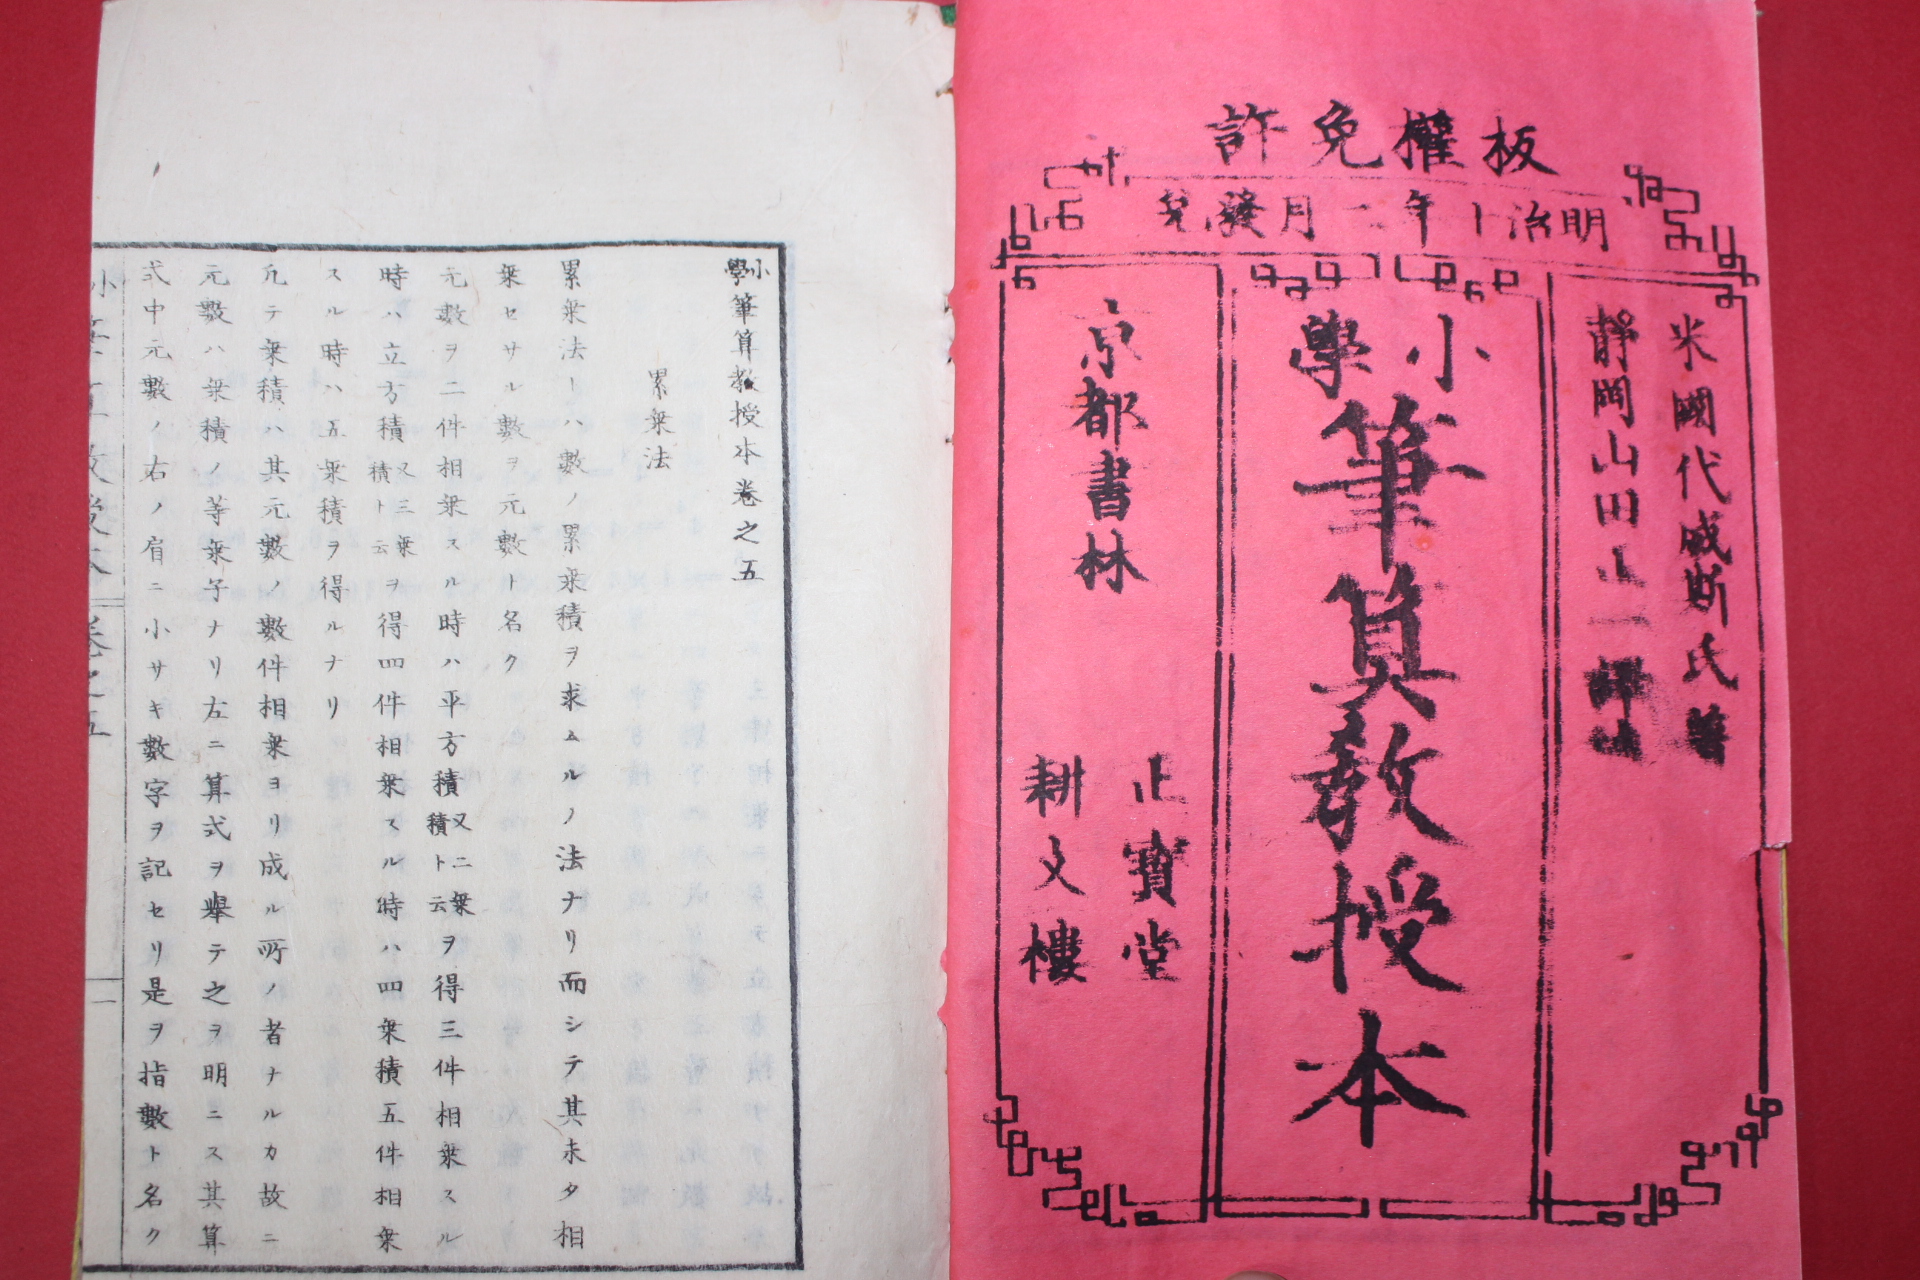 板權免許
明治十年二月發兌
米國代威斯氏著
靜岡山田正一譯述
小學
筆算教授本
京都書林
正寶堂
耕文樓
小學筆算教授本卷之五
累乗法
累乗法トハ數ノ累乗積ヲ求ムルノ法ナリ而シテ其未タ相
乗セサル數ヲ元數ト名ク
元數ヲ二件相乗スル時ハ平方積又二乗積ト云ヲ得三件相乗スル
時ハ立方積又三乗積ト云ヲ得四件相乗スル時ハ四乗積五件相乗
スル時ハ五乗積ヲ得ルナリ
凢テ乗積ハ其元數ノ數件相乗ヨリ成ル所ノ者ナルカ故ニ
元數ハ乗積ノ等乗子ナリ左ニ算式ヲ舉テ之ヲ明ニス其算
式中元數ノ右ノ肩ニ小サキ數字ヲ記セリ是ヲ指數ト名ク